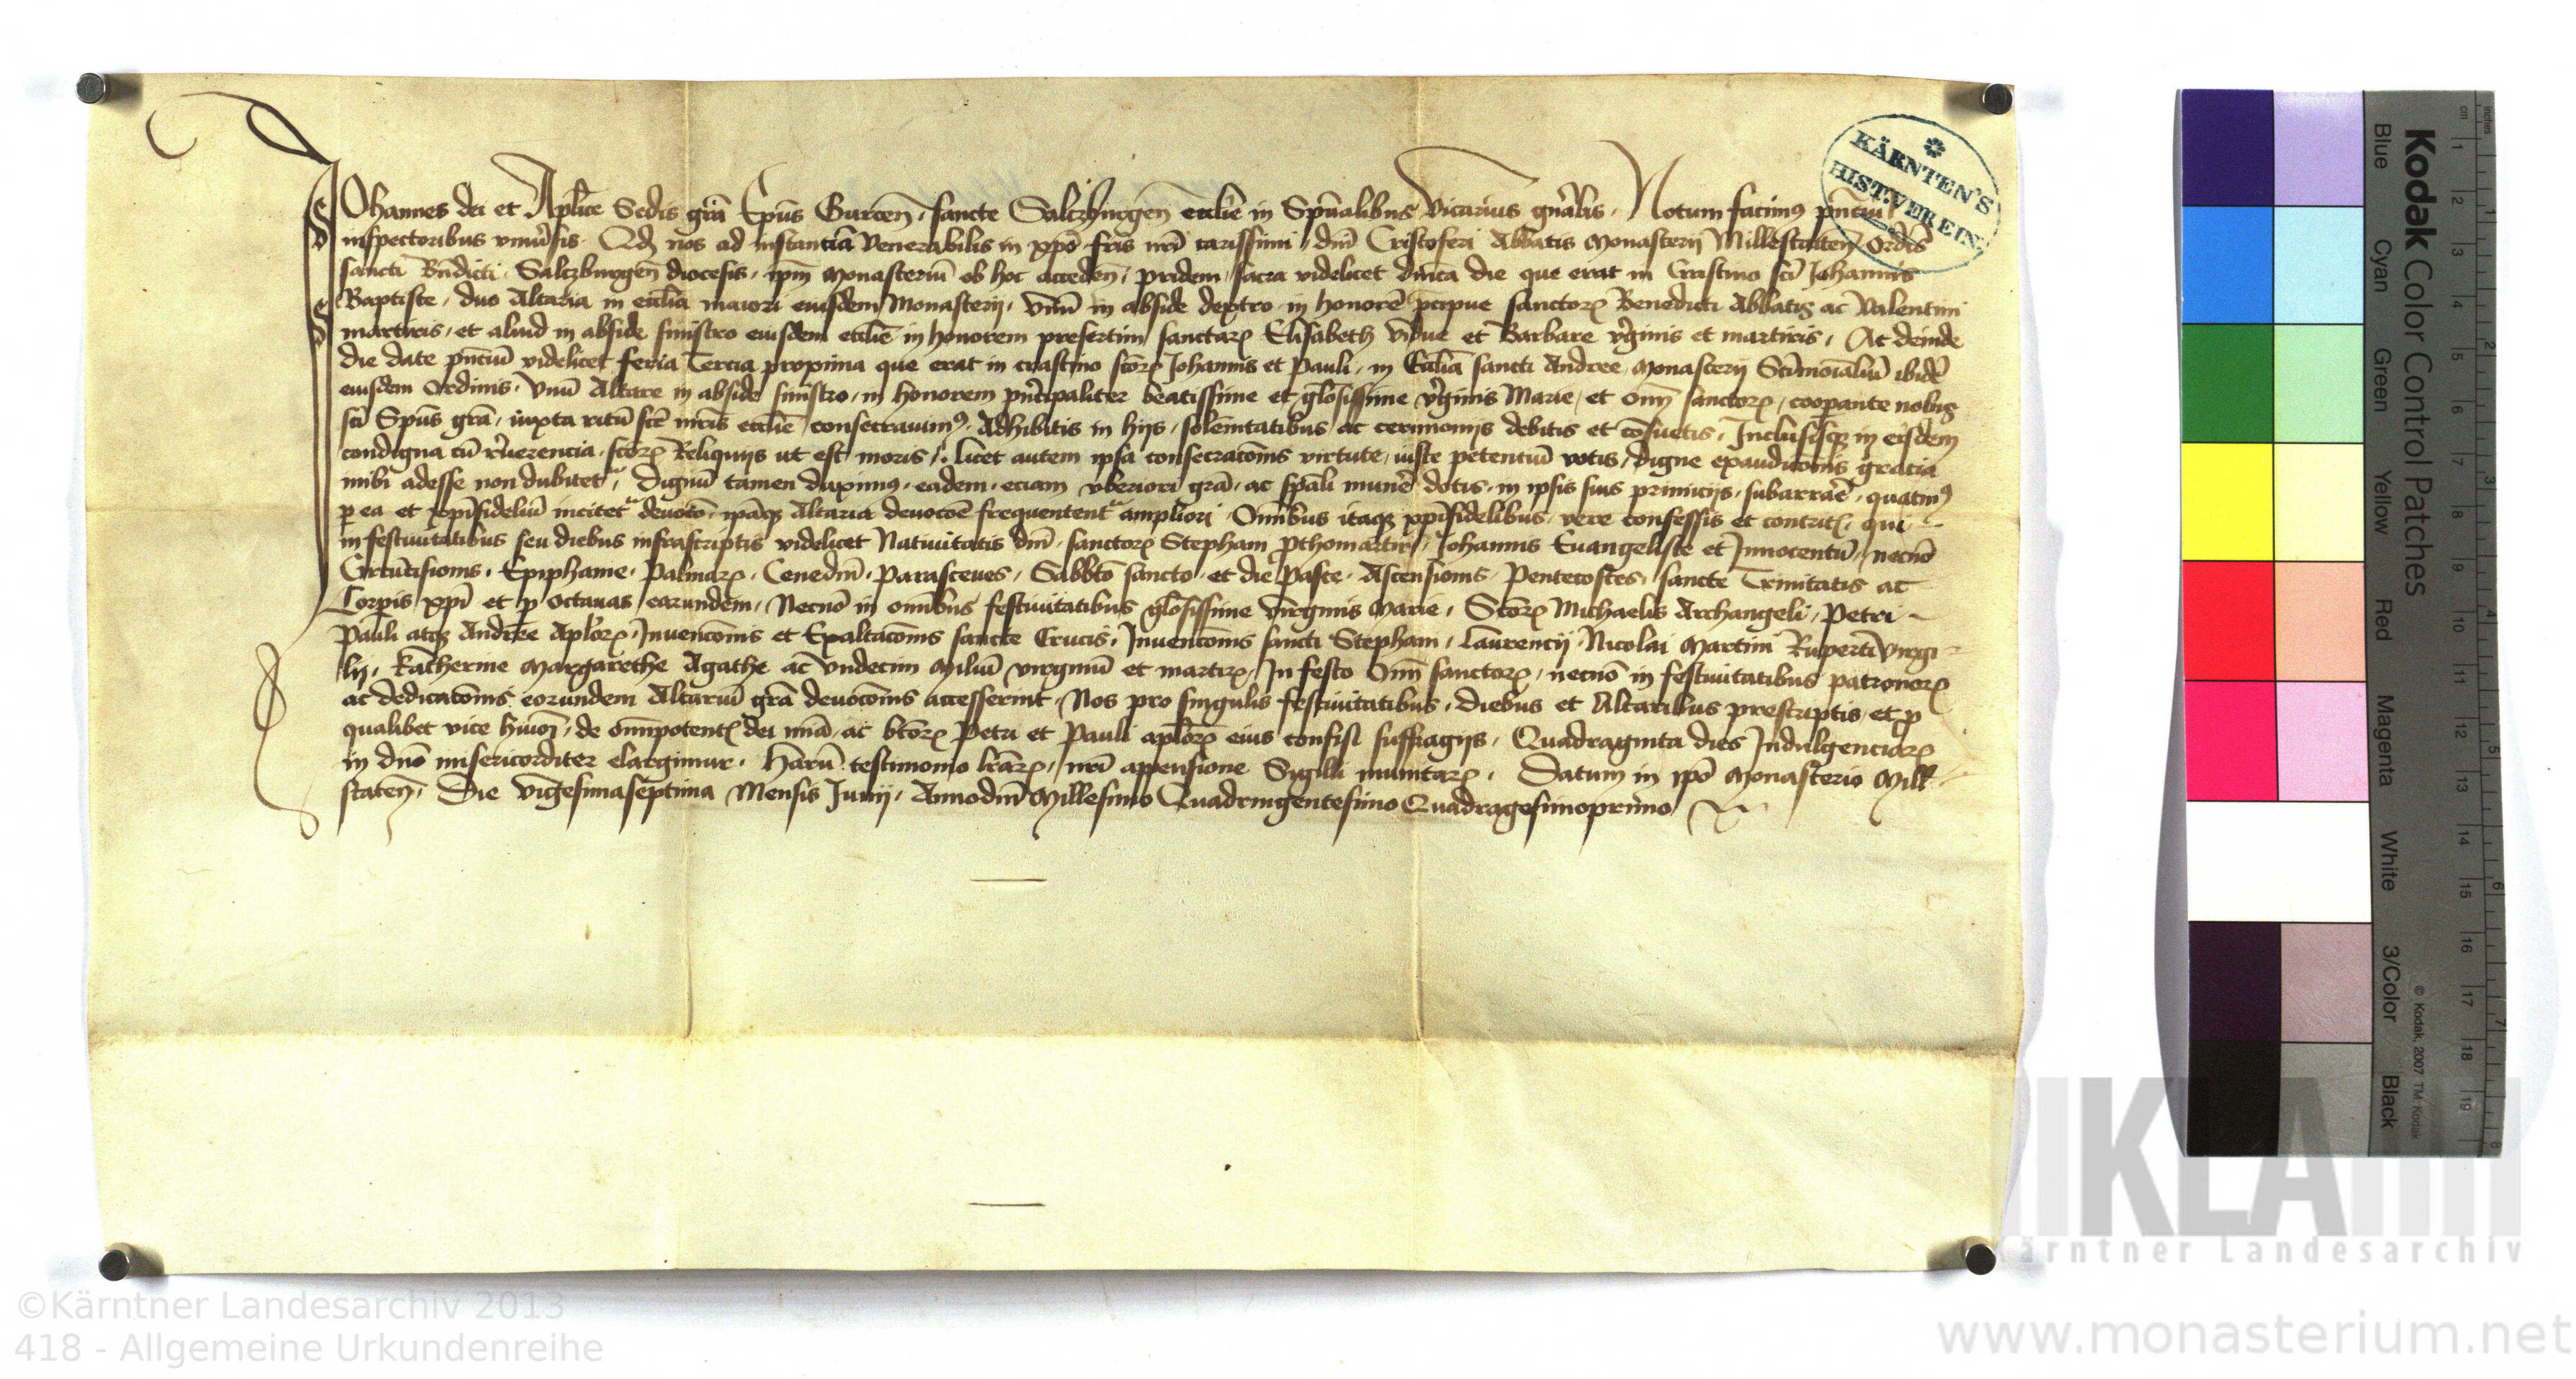 Johannes dei et Aplice Sedis gra͞ Epūs Gurcen̄, sancte Salczburgen̄ ecclie in Spūalibus Vicarius gn̄alis, Notum facimꝰ pn̄ciū
inspectoribus vniu͛sis. Qd nos ad instantiā Venerabilis in xpō fris nri carissimi, dni Cristoferi Abbatis Monasterij Millestaten̄ Ordīs
sancti Bn̄dicti, Salczburgen̄ diocesis, ipm̄ Monasteriū ob hoc acceden̄, pridem, sacra videlicet dnīca die que erat in Crastino sci Johannis
Baptiste, duo Altaria in ecclia maiori eiusdem Monasterij, vnū in abside dextro in honorē p̄cipue sanctorꝝ Benedicti Abbatis ac Valentini
martiris, et aliud in abside sinistro eiusdem ecclie in honorem presertim sanctarꝝ Elisabeth vidue et Barbare v͛ginis et martiris, Ac deinde
die date pn̄ciū videlicet feria Tercia proxima que erat in crastino scorꝝ Johannis et Pauli, in Ecclia sancti Andree Monasterij Scīmoīaliū ibidē
eiusdem Ordinis, Vnū Altare in abside sinistro, in honorem pn͛cipaliter beatissime et gl̄osissime v͛ginis Marie, et om̄ sanctorꝝ, coop̄ante nobis
sci Spūs grā, iuxta ritū scē mr̄is ecclie consecrauimꝰ, Adhibitis in hijs, solēnitatibus ac cerimonijs debitis et cōsuetis, Inclusisqꝫ in eisdem
condigna cū r͛uerencia, scorꝝ Reliquijs ut est moris, licet autem ipsa consecracōnis virtute, iuste petentiū votis, digne exaudicōnis gracia
inibi adesse non dubitet͛, Dignū tamen duximꝰ, eadem, eciam vberiori grā, ac sp̄ali mun͛e dotis, in ipsis suis primicijs, subarrāre, quatinꝰ
p ea et xpīfideliū incitet͛ deuocō, ipāqꝫ Altaria deuocōe frequentent͛ ampliori. Omībus itaqꝫ xpīfidelibus, vere confessis et contrit, qui
in festiuitatibus seu diebus infrascriptis videlicet Natiuitatis dnī, sanctorꝝ Stephani p̄thomartir, Johannis Euangeliste et Innocentū, necnō
Circūcisionis, Epiphanie, Palmarꝝ, Cenednī, Parasceues, Sabbto sancto, et die Pasce, Ascensionis, Pentecostes, sancte Trinitatis ac
Corpis xpī et p octauas earundem, Necnō in omībus festiuitatibus gl̄osissime virginis Marie, Scorꝝ Michaelis Archangeli, Petri
Pauli atqꝫ Andree Aplorꝝ, Inuencōnis et Exaltacōnis sancte Crucis, Inuencōnis sancti Stephani, Laurencij, Nicolai Martini Ruperti Virgi
lij, Katherine Margarethe Agathe ac Vndecim Miliū virginū et martirꝝ, In festo Om̄ sanctorꝝ, necnō in festiuitatibus patronorꝝ
ac dedicacōnis eorundem Altariū grā deuocōnis accesserint, Nos pro singulis festiuitatibus, diebus et Altaribus prescriptis, et p
qualibet vice hm̄oi, de omīpotent dei mīa, ac btorꝝ Petri et Pauli aplorꝝ eius confisi suffragijs, Quadraginta dies Indulgenciarꝝ
in dnō misericorditer elargimur. Harū testimonio lrarꝝ, nri appensione Sigilli munitarꝝ. Datum in ipō Monasterio Mill
staten̄, Die vigesimaseptima Mensis Junij, Annodnī Millesimo Quadringentesimo Quadragesimoprimo
KÄRNTEN'S
HIST.VEREIN.
Kodak Color Control Patches
Blue Cyan Green Yellow Red Magenta White 3/Color Black
© Kodak, 2007 TM: Kodak
cm 1 2 3 4 5 6 7 8 9 10 11 12 13 14 15 16 17 18 19
inches 1 2 3 4 5 6 7 8
KLA
Kärntner Landesarchiv
©Kärntner Landesarchiv 2013
418 - Allgemeine Urkundenreihe
www.monasterium.net